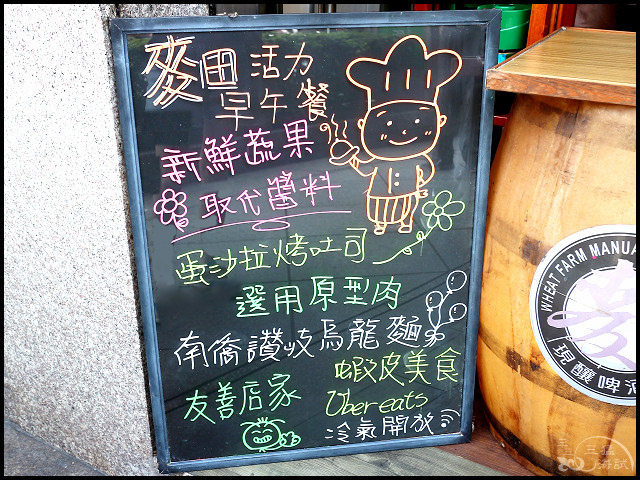 麥田活力
早午餐
新鮮蔬果
取代醬料
蛋沙拉烤吐司
選用原型肉
南僑讚岐烏龍麵
蝦皮美食
友善店家
Uber eats
冷氣開放
WHEAT FARM MANUA
麥
現釀啤酒